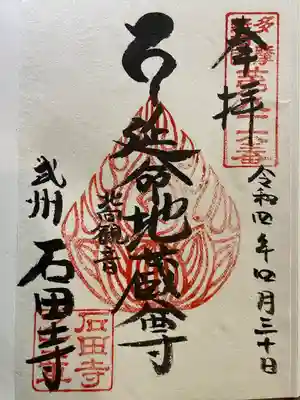 多摩
奉拝
令和四年四月三十日
延命地蔵尊
観音
武州
石田寺
石田寺